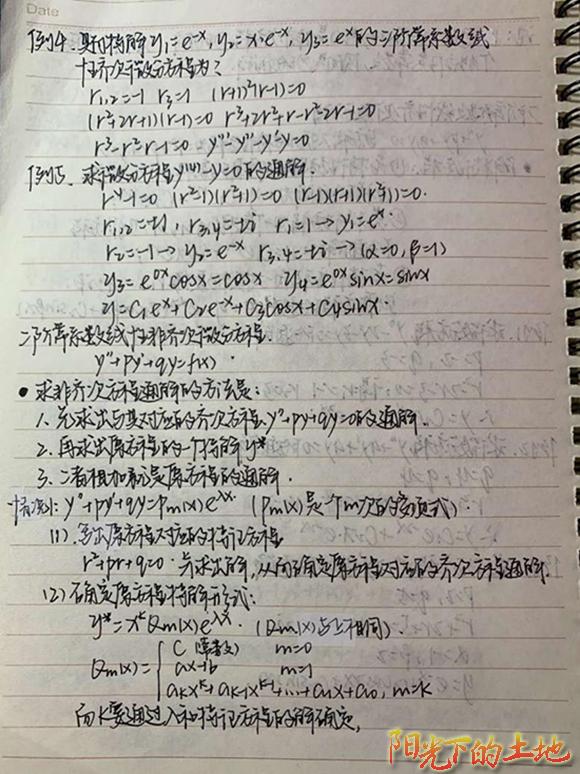 Date
例4. 具有特解y₁=e^-x, y₂=x·e^-x, y₃=e^x的三阶常系数线
性齐次微分方程为?
r₁,₂=-1 r₃=1 (r+1)²(r-1)=0
(r²+2r+1)(r-1)=0 r³+2r²+r-r²-2r-1=0
r³+r²-r-1=0 y'''+y''-y'-y=0
例5. 求微分方程y⁽⁴⁾-y=0的通解.
r⁴-1=0 (r²-1)(r²+1)=0 (r-1)(r+1)(r²+1)=0.
r₁,₂=±1, r₃,₄=±i r₁=1→y₁=e^x.
r₂=-1→y₂=e^-x r₃,₄=±i→(α=0,β=1)
y₃=e^0x cosx=cosx y₄=e^0x sinx=sinx
y=C₁e^x+C₂e^-x+C₃cosx+C₄sinx.
二阶常系数线性非齐次微分方程.
y''+py'+qy=f(x).
• 求非齐次方程通解的方法是:
1. 先求出与其对应的齐次方程y''+py'+qy=0的通解.
2. 再求出原方程的一个特解y*
3. 二者相加就是原方程的通解.
情况1: y''+py'+qy=Pm(x)e^λx. (Pm(x)是一个m次的多项式).
(1). 写出原方程对应的特征方程
r²+pr+q=0. 并求出解,从而确定原方程对应的齐次方程通解.
(2) 确定原方程特解形式:
y*=x^k Qm(x)e^λx. (Qm(x)与上相同).
Qm(x)= { C (常数) m=0
ax+b m=1
aₖx^k+aₖ₋₁x^k-1+...+a₁x+a₀, m=k
而k要通过λ和特征方程的解确定,
阳光下的土地